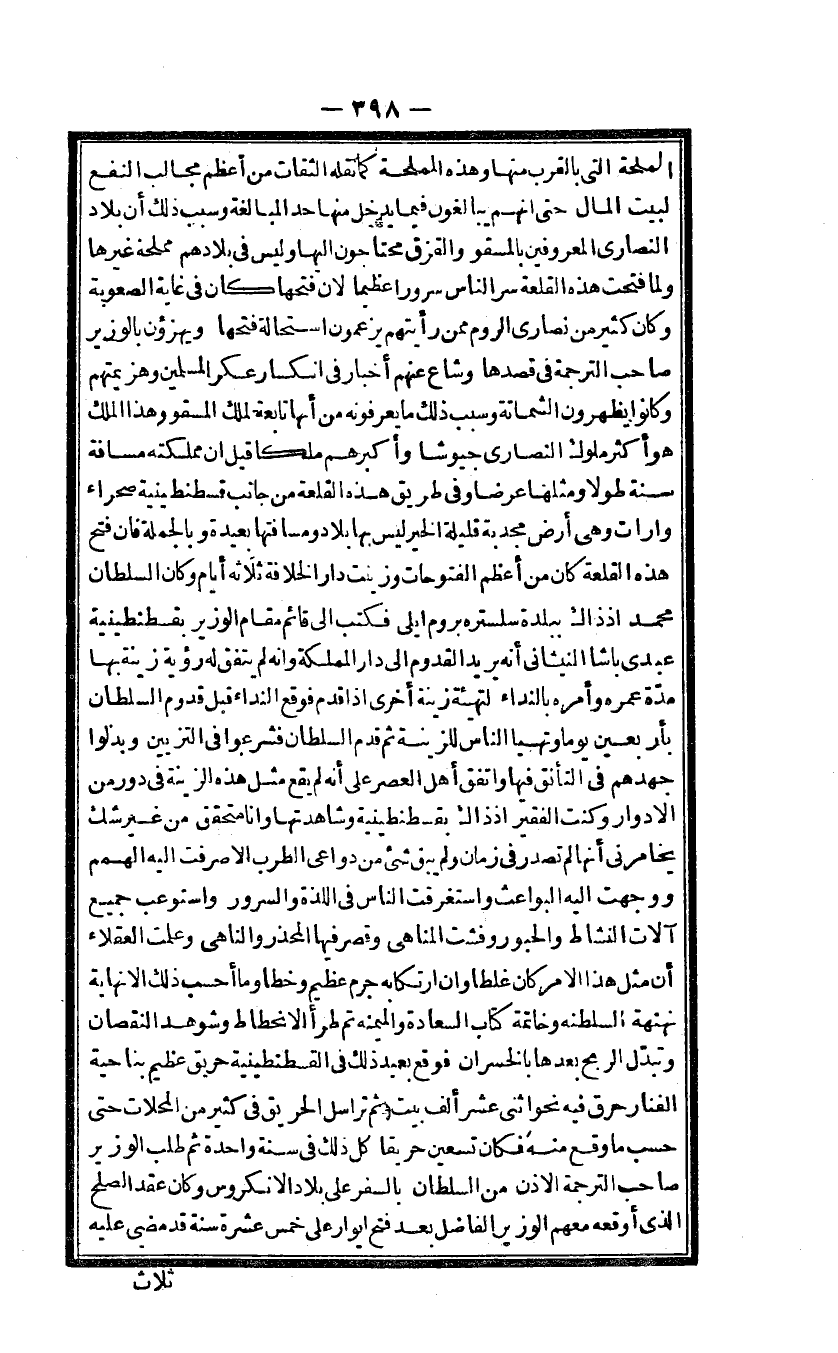 — ٣٩٨ —
المملحة التى بالقرب منها وهذه المملحة كما نقله الثقات من أعظم مجالب النفع
لبيت المال حتى انهم يبالغون فيما يدخل منها حد المبالغة وسبب ذلك أن بلاد
النصارى المعروفين بالمسقو والقزق محتاحون اليها وليس فى بلادهم مملحة غيرها
ولما فتحت هذه القلعة سر الناس سرورا عظيما لان فتحها كان فى غاية الصعوبة
وكان كثير من نصارى الروم ممن رأيتهم يزعمون استحالة فتحها ويهزؤن بالوزير
صاحب الترجمة فى قصدها وشاع عنهم أخبار فى انكسار عسكر المسلمين وهزيمتهم
وكانوا يظهرون الشماتة وسبب ذلك ما يعرفونه من أنها تابعة لملك المسقو وهذا الملك
هو أكثر ملوك النصارى جيوشا وأكبرهم ملكا قيل ان مملكته مسافة
سنة طولا ومثلها عرضا وفى طريق هذه القلعة من جانب قسطنطينية صحراء
وارات وهى أرض مجدبة قليلة الخير ليس بها بلاد ومسافتها بعيدة وبالجملة فان فتح
هذه القلعة كان من أعظم الفتوحات وزينت دار الخلافة ثلاثه أيام وكان السلطان
محمد اذ ذاك ببلدة سلستره بروم ايلى فكتب الى قائم مقام الوزير بقسطنطينية
عبدى باشا النيشانى أنه يريد القدوم الى دار المملكة وانه لم يتفق له رؤية زينة بها
مدّة عمره وأمره بالنداء لتهيئة زينة أخرى اذا قدم فوقع النداء قبل قدوم السلطان
بأربعين يوما وتهيا الناس للزينة ثم قدم السلطان فشرعوا فى التزيين وبذلوا
جهدهم فى التأنق فيها واتفق أهل العصر على أنه لم يقع مثل هذه الزينة فى دور من
الادوار وكنت الفقير اذ ذاك بقسطنطينية وشاهدتها وانا متحقق من غير شك
يخامرنى أنها لم تصدر فى زمان ولم يبق شئ من دواعى الطرب الا صرفت اليه الهمم
ووجهت اليه البواعث واستغرقت الناس فى اللذة والسرور واستوعب جميع
آلات النشاط والحبور وفشت المناهى وقصر فيها المحذر والناهى وعلمت العقلاء
أن مثل هذا الامر كان غلطا وان ارتكابه جرم عظيم وخطا وما أحسب ذلك الا نهاية
نهنهة السلطنه وخاتمة كتاب السعادة والميمنه ثم طرأ الانحطاط وشوهد النقصان
وتبدّل الربح بعدها بالخسران فوقع بعيد ذلك فى القسطنطينية حريق عظيم بناحية
الفنار حرق فيه نحو اثنى عشر ألف بيت ثم تراسل الحريق فى كثير من المحلات حتى
حسب ما وقع منه فكان تسعين حريقا كل ذلك فى سنة واحدة ثم طلب الوزير
صاحب الترجمة الاذن من السلطان بالسفر على بلاد الانكروس وكان عقد الصلح
الذى أوقعه معهم الوزير الفاضل بعد فتح ايوار على خمس عشرة سنة قد مضى عليه
ثلاث